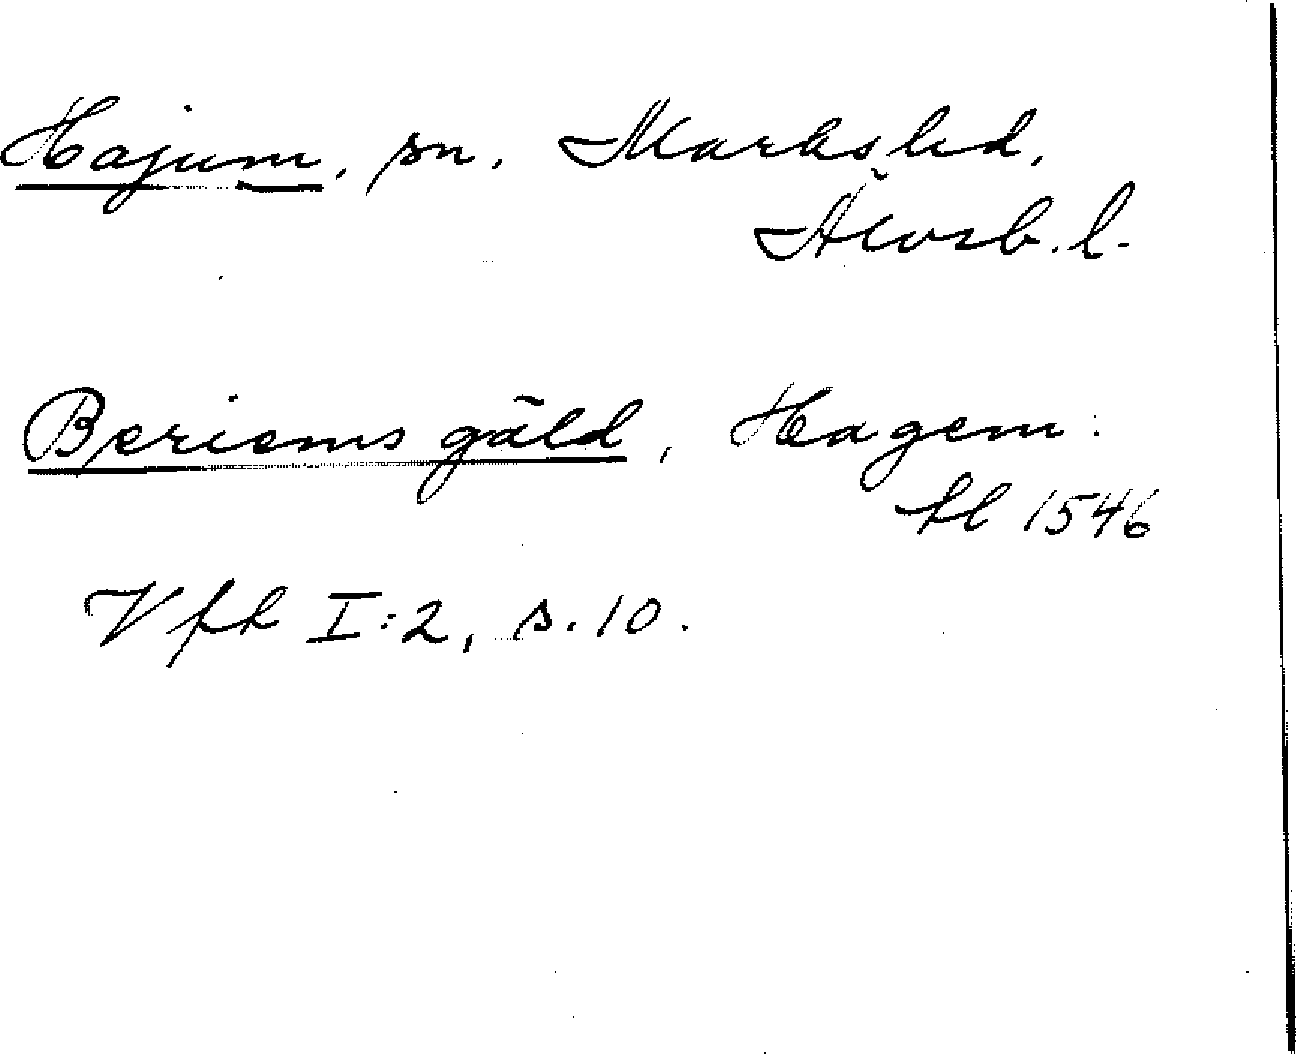 Hajum, sn. Marks hd,
Älvsb. l.
Beriems gäld, Hagem:
hl 1546
Vfh I:2, s. 10.